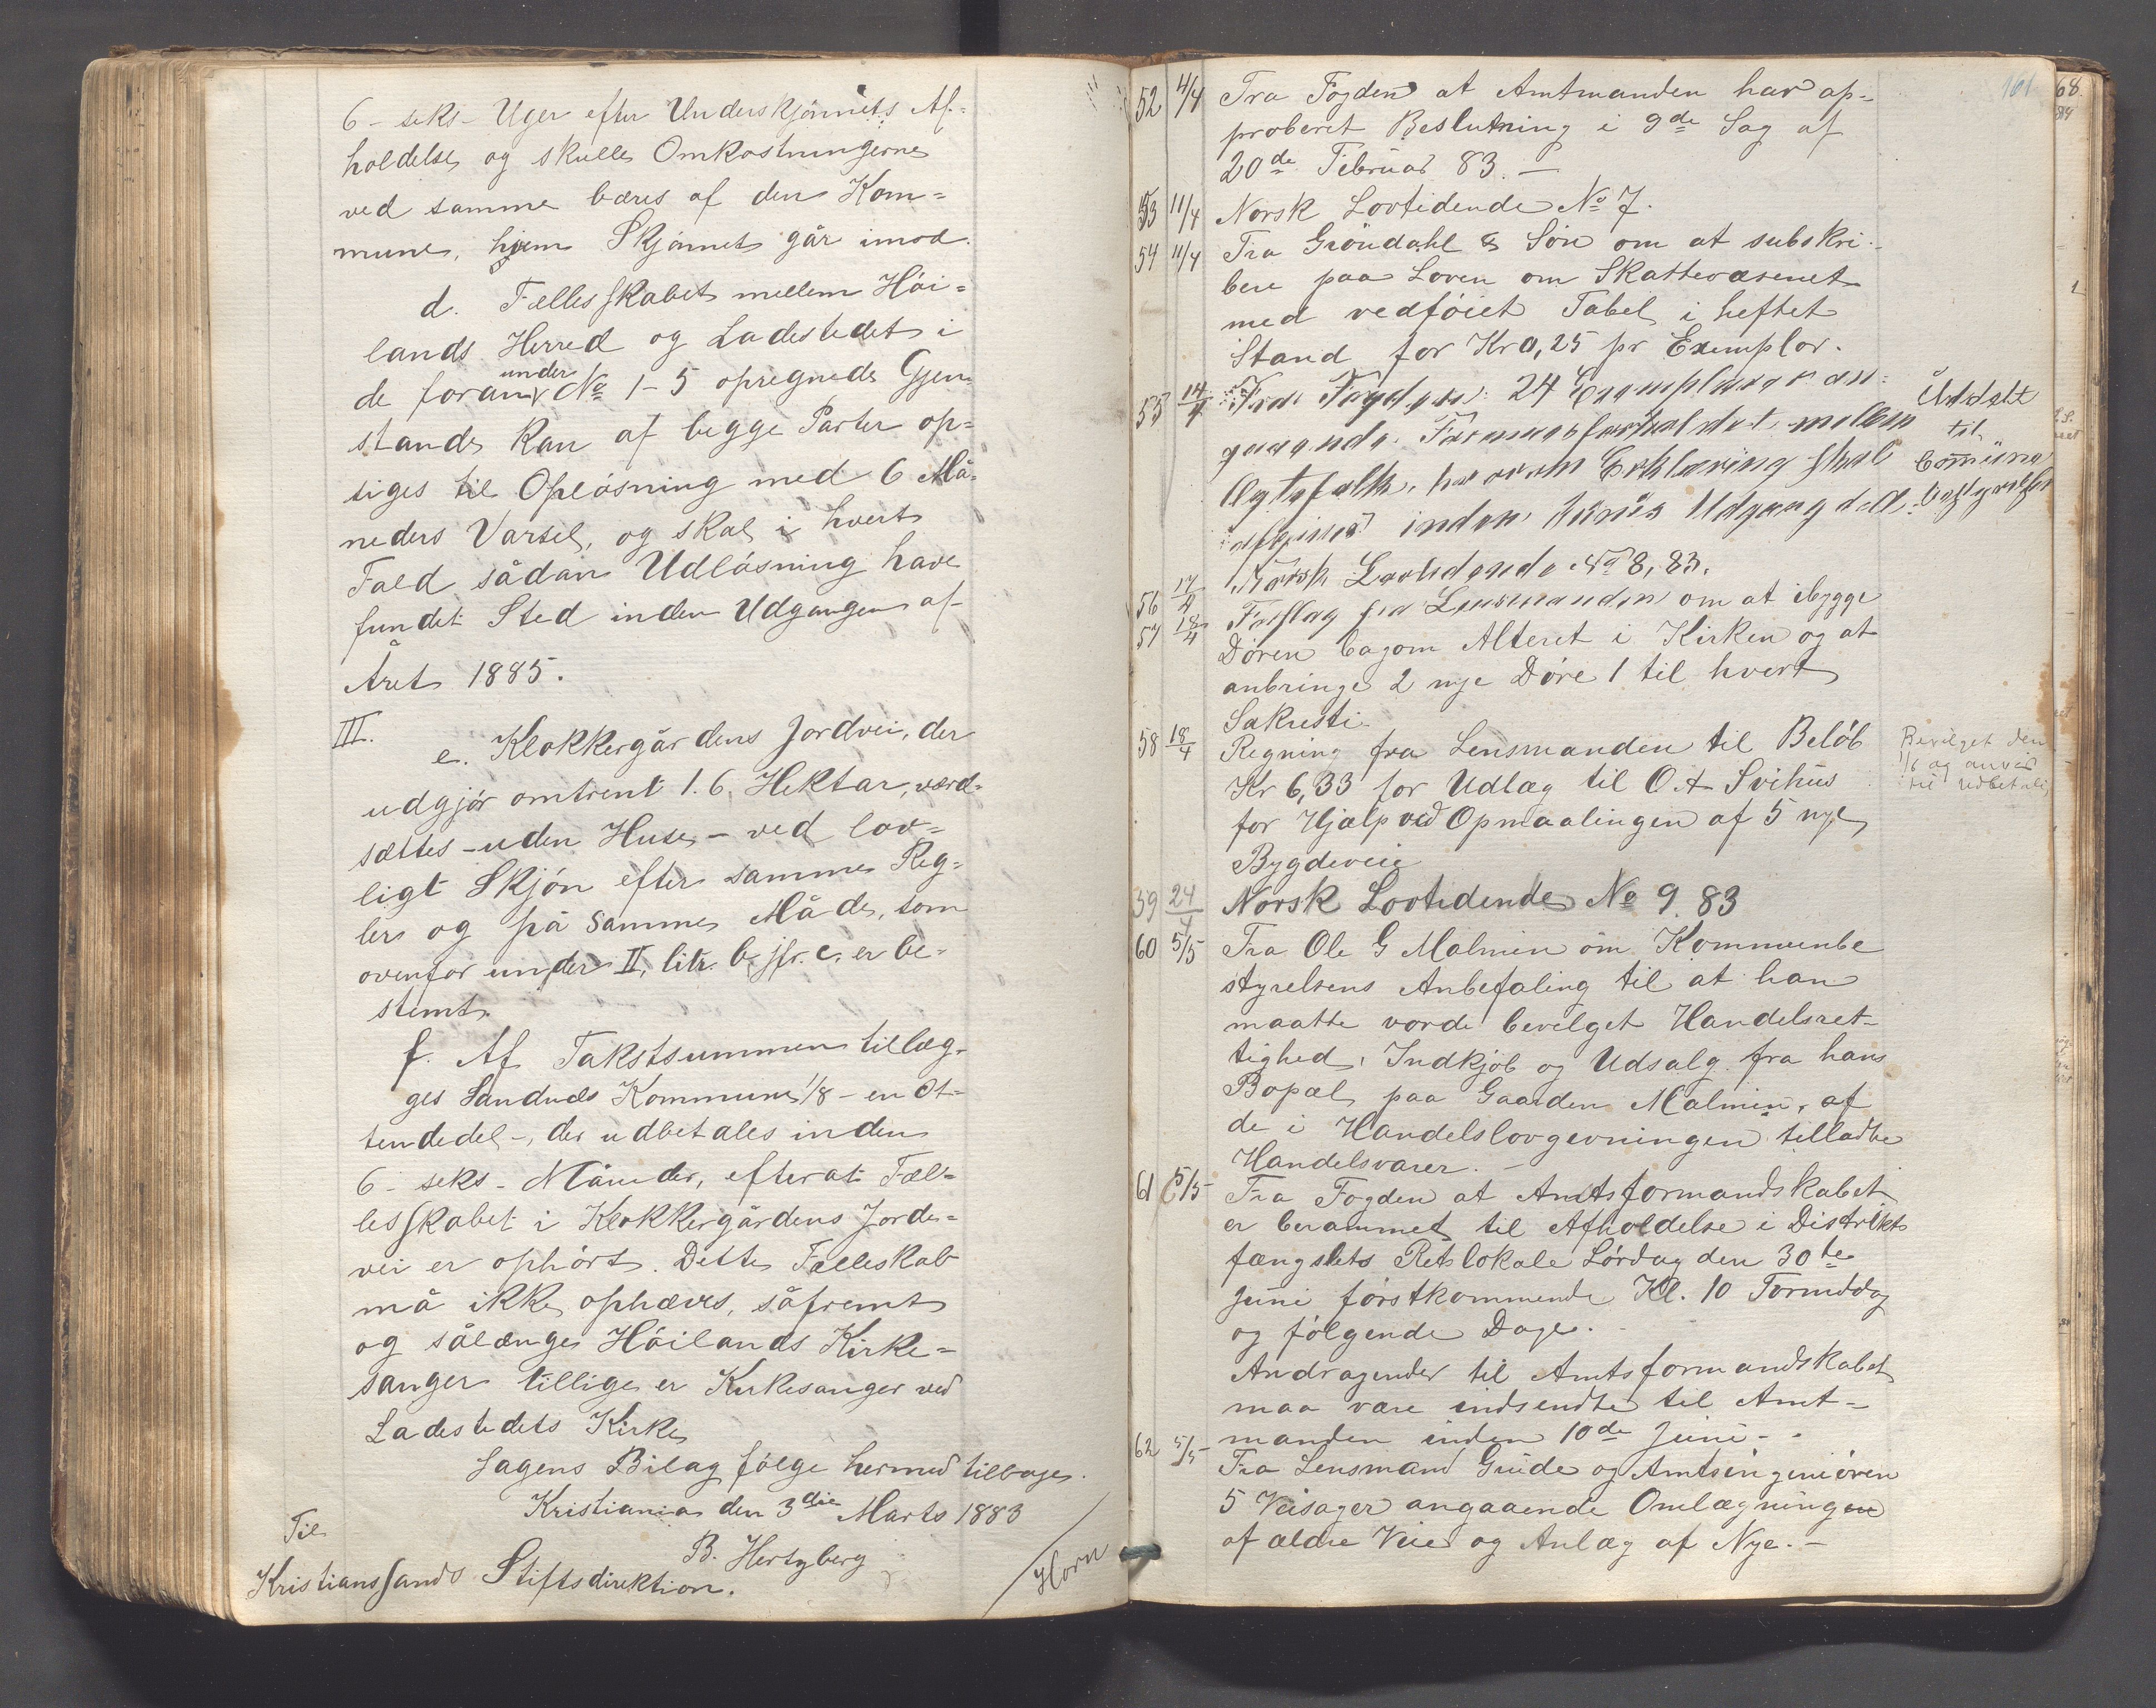 6 - seks - Uger efter Underskjønnets Af-
holdelse, og skulle Omkostningerne
ved samme bæres af den Kom-
mune, hvem Skjønnet går imod.
d. Fællesskabet mellem Höi-
lands Herred og Ladestedet i
under
de foran No 1-5 opregnede Gjen-
stande kan af begge Parter op-
siges til Opløsning med 6 Må-
neders Varsel, og skal i hvert
Fald sådan Udløsning have
fundet Sted inden Udgangen af
Året 1885.
III.
e. Klokkergårdens Jordvei, der
udgjør omtrent 1.6. Hektar, værd-
sættes - uden Huse - ved lov-
ligt Skjøn efter samme Reg-
ler og på samme Måde, som
ovenfor under II, litr. b. jfr. c. er be-
stemt.
f. Af Takstsummen tillæg-
ges Sandnæs Kommune 1/8 - en Ot-
tendedel -, der udbetales inden
6 - seks - Måneder, efterat Fæl-
lesskabet i Klokkergårdens Jorde-
vei er ophørt. Dette Fælleskab
må ikke ophæves, såfremt
og sålænge Höilands Kirke-
sanger tillige er Kirkesanger ved
Ladestedets Kirke
Sagens Bilag følge hermed tilbage.
Kristiania den 3die Marts 1883
B. Hertzberg
Horn
Til
Kristianssands Stiftsdirektion.
161
52 4/4 Fra Fogden at Amtmanden har ap-
proberet Beslutning i 9de Sag af
20de Februar 83. -
53 11/4 Norsk Lovtidende No 7.
54 11/4 Fra Gröndahl & Søn om at subskri-
bere paa Loven om Skattevæsenet
med vedføiet Tabel i heftet
Stand for Kr 0,25 pr Exemplar.
55 14/4 Fra Fogden: 24 Exemplarer an-
gaaende Formuesforholdet mellem
Ægtefolk, hvorom Erklæring skal
afgives inden Junis Udgang d. A.
Uddelt
til
Comüne
bestyrelsen
56 17/4 Norsk Lovtidende No 8, 83.
57 18/4 Forslag fra Lensmanden om at ibygge
Døren bagom Alteret i Kirken og at
anbringe 2 nye Døre 1 til hvert
Sakristi.
58 18/4 Regning fra Lensmanden til Beløb
Kr 6,33 for Udlæg til O. A Svihus
for Hjælp ved Opmaalingen af 5 nye
Bygdeveie
Bevilget den
1/6 og anvist
til Udbetaling
59 24/4 Norsk Lovtidende No 9. 83
60 5/5 Fra Ole G Malmin om Kommunbe
styrelsens Anbefaling til at han
maatte vorde bevilget Handelsret-
tighed, Indkjøb og Udsalg fra hans
Bopæl paa Gaarden Malmin, af
de i Handelslovgivningen tilladte
Handelsvarer. -
61 5/5 Fra Fogden at Amtsformandskabet
er berammet til Afholdelse i Distrikts
fængslets Retslokale Lørdag den 30te
Juni førstkommende Kl. 10 Formiddag
og følgende Dage.
Andragender til Amtsformandskabet
maa være indsendte til Amt-
manden inden 10de Juni -.
62 5/5 Fra Lensmand Gude og Amtsingeniøren
5 Veisager angaaende Omlægningen
af ældre Veie og Anlæg af Nye. -